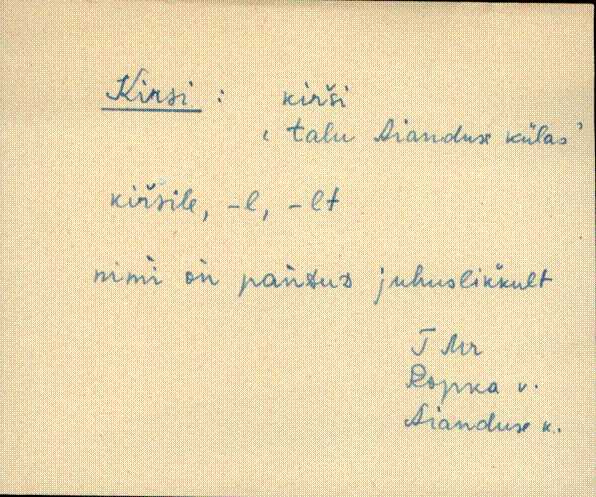 Kirsi : kirši
‘talu Aianduse külas’
kiřsile, -l, -lt
nimi on pańdus juhuslikkult
T Mr
Ropka v.
Aianduse k.